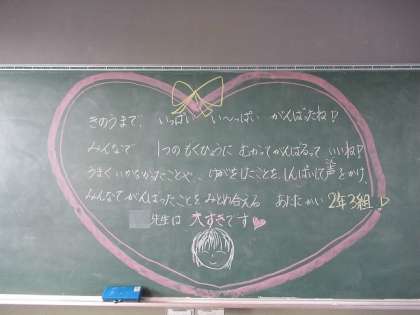 きのうまで、いっぱい い〜っぱい がんばったね!
みんなで 1つのもくひょうに むかってがんばるって いいね!
うまくいかなかったことや、けがをしたことを、しんぱいして声をかけ、
みんなでがんばったことをみとめ合える あたたかい 2年3組!
先生は 大すきです